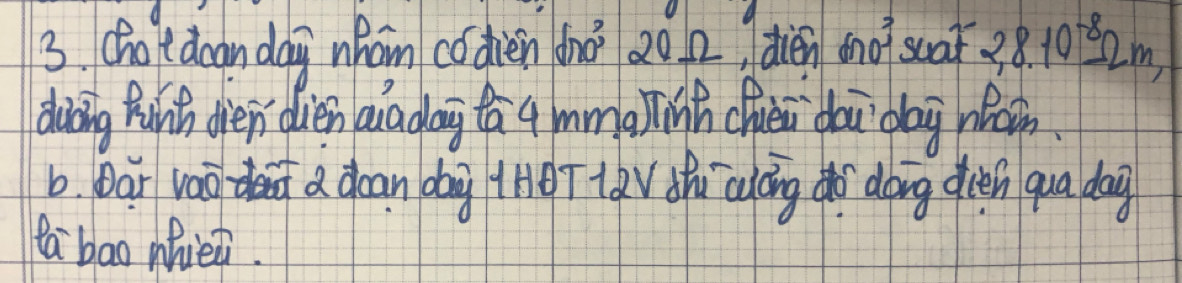 3. Cho 1 đoạn dây nhôm có điện trở 20 Ω, điện trở suất 2,8.10⁻⁸Ωm,
đường kính diện của dây là 4 mm a) Tính chiều dài dây nhôm.
b. Đặt vào 2 đoạn dây 1 HĐT 12V thì cường độ dòng điện qua dây
là bao nhiêu.